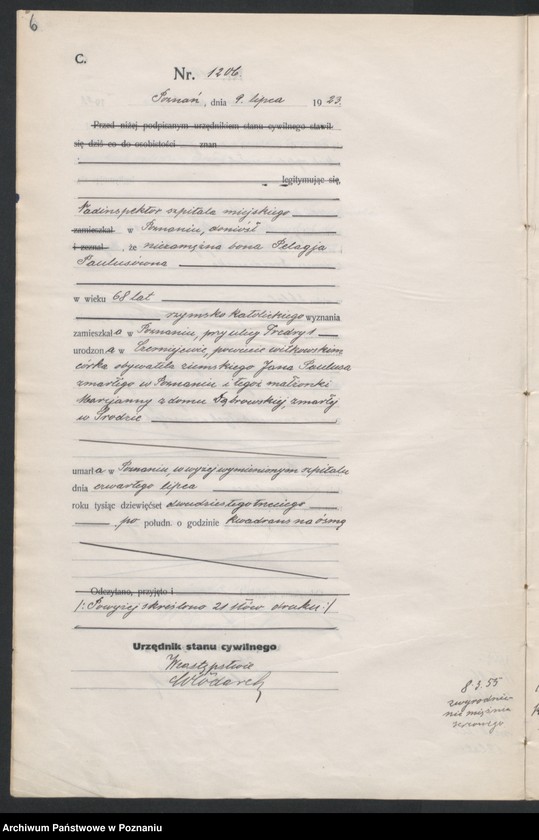 6
C.
Nr. 1206
Poznań, dnia 9. lipca 1923.
Przed niżej podpisanym urzędnikiem stanu cywilnego stawił
się dziś co do osobistości znan
legitymując się,
Nadinspektor szpitala miejskiego
zamieszkał w Poznaniu, doniósł
i zeznał, że niezamężna bona Pelagja
Paulusówna
w wieku 68 lat
rzymsko katolickiego wyznania
zamieszkała w Poznaniu, przy ulicy Fredry 1
urodzona w Czerniejewie, powiecie witkowskim
córka obywatela ziemskiego Jana Paulusa
zmarłego w Poznaniu i tegoż małżonki
Marjanny z domu Dąbrowskiej, zmarłej
w Środzie
umarła w Poznaniu, w wyżej wymienionym szpitalu
dnia czwartego lipca
roku tysiąc dziewięćset dwudziestego trzeciego
po połudn. o godzinie kwadrans na ósmą
Odczytano, przyjęto i
/: Powyżej skreślono 21 słów druku :/
Urzędnik stanu cywilnego
W zastępstwie
8.3.55
zwyrodnie-
nie mięśnia
sercowego
Archiwum Państwowe w Poznaniu